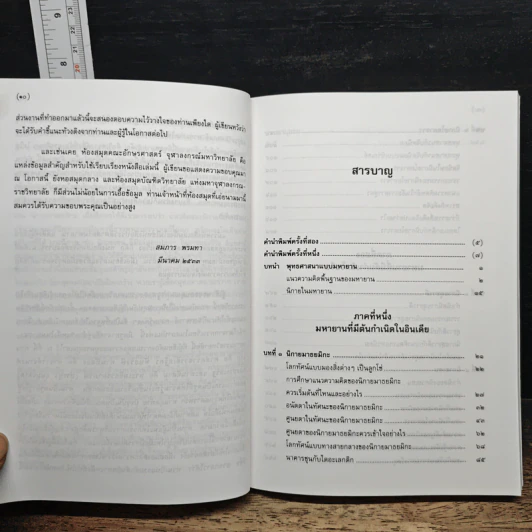 (๑๐)
ส่วนงานที่ทำออกมาแล้วนี้จะสนองตอบความไว้วางใจของท่านเพียงใด ผู้เขียนหวังว่า
จะได้รับคำชี้แนะท้วงติงจากท่านและผู้รู้ในโอกาสต่อไป
และเช่นเคย ห้องสมุดคณะอักษรศาสตร์ จุฬาลงกรณ์มหาวิทยาลัย คือ
แหล่งข้อมูลสำคัญสำหรับใช้เรียบเรียงหนังสือเล่มนี้ ผู้เขียนขอแสดงความขอบคุณมา
ณ โอกาสนี้ ยังหอสมุดกลาง และห้องสมุดบัณฑิตวิทยาลัย แห่งมหาจุฬาลงกรณ-
ราชวิทยาลัย ก็มีส่วนไม่น้อยในการเอื้อข้อมูล ท่านเจ้าหน้าที่ห้องสมุดที่เอ่ยนามมานี้
สมควรได้รับความขอบพระคุณเป็นอย่างสูง
สมภาร พรมทา
มีนาคม ๒๕๓๓
สารบาญ
คำนำพิมพ์ครั้งที่สอง (๕)
คำนำพิมพ์ครั้งที่หนึ่ง (๗)
บทนำ พุทธศาสนาแบบมหายาน ๑
แนวความคิดพื้นฐานของมหายาน ๒
นิกายในมหายาน ๑๕
ภาคที่หนึ่ง
มหายานที่มีต้นกำเนิดในอินเดีย
บทที่ ๑ นิกายมาธยมิกะ ๒๑
โลกทัศน์แบบมองสิ่งต่างๆ เป็นลูกโซ่ ๒๒
การศึกษาแนวความคิดของนิกายมาธยมิกะ
ควรเริ่มต้นที่ไหนและอย่างไร ๒๗
อนัตตาในทัศนะของนิกายมาธยมิกะ ๓๒
ศูนยตาในทัศนะของนิกายมาธยมิกะ ๔๓
ศูนยตาของนิกายมาธยมิกะควรเข้าใจอย่างไร ๖๒
โลกทัศน์แบบทางสายกลางของนิกายมาธยมิกะ ๖๘
นาคารชุนกับไดอะเลกติก ๘๕